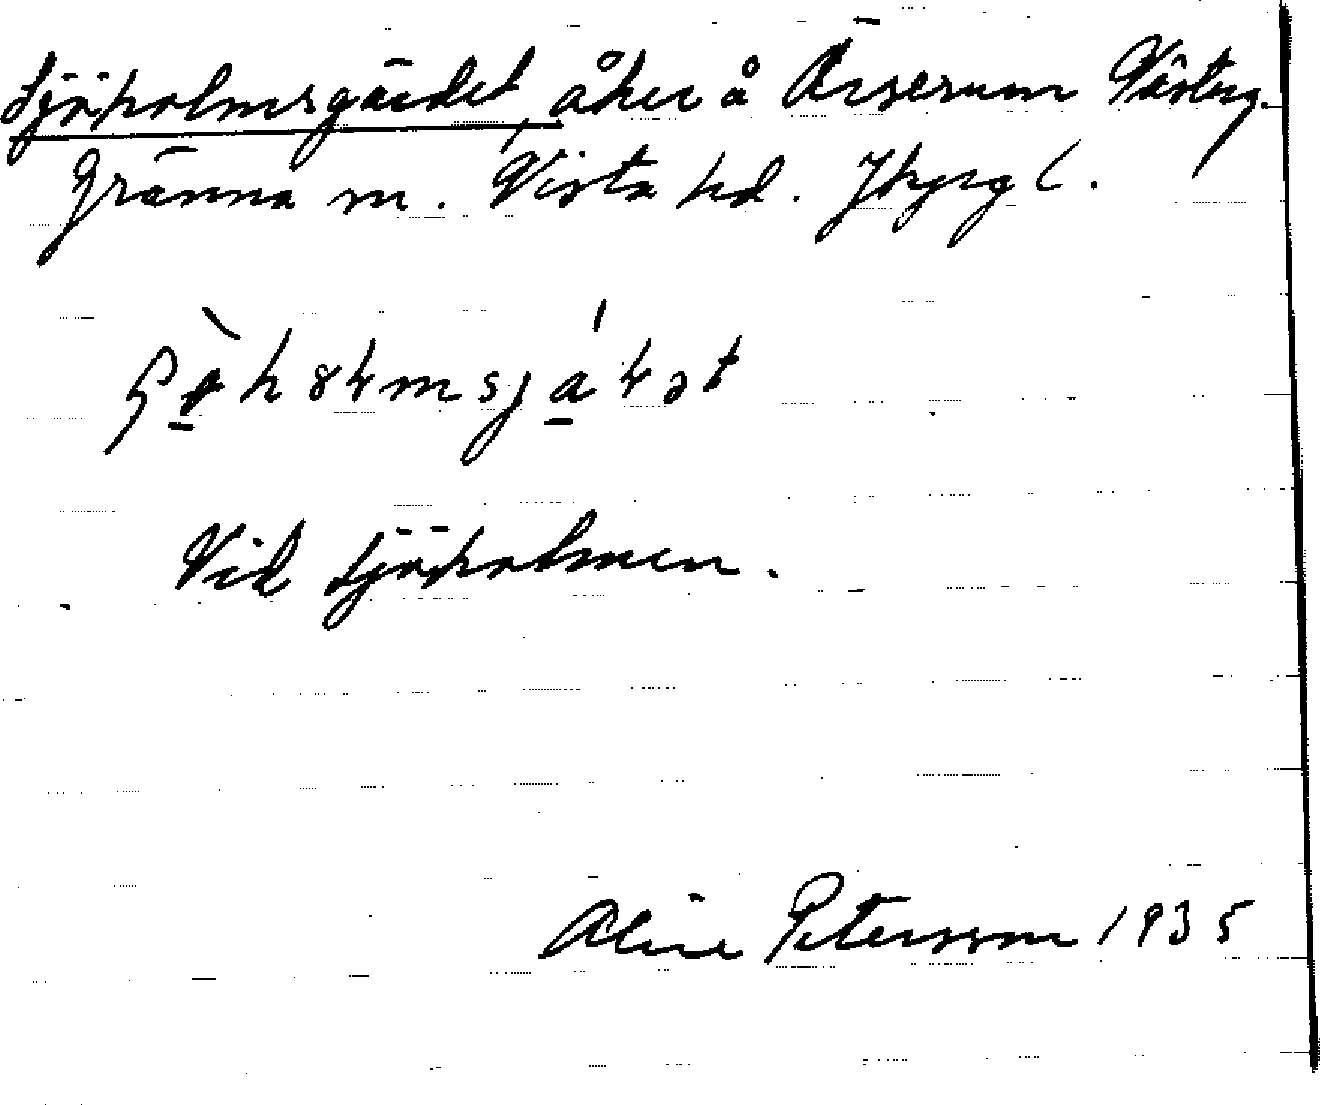 Sjöholmsgärdet, åker å Örserum Västerg.
Gränna sn. Vista hd. Jkpgs l.
Vid Sjöholmen.
Aline Petersson 1935